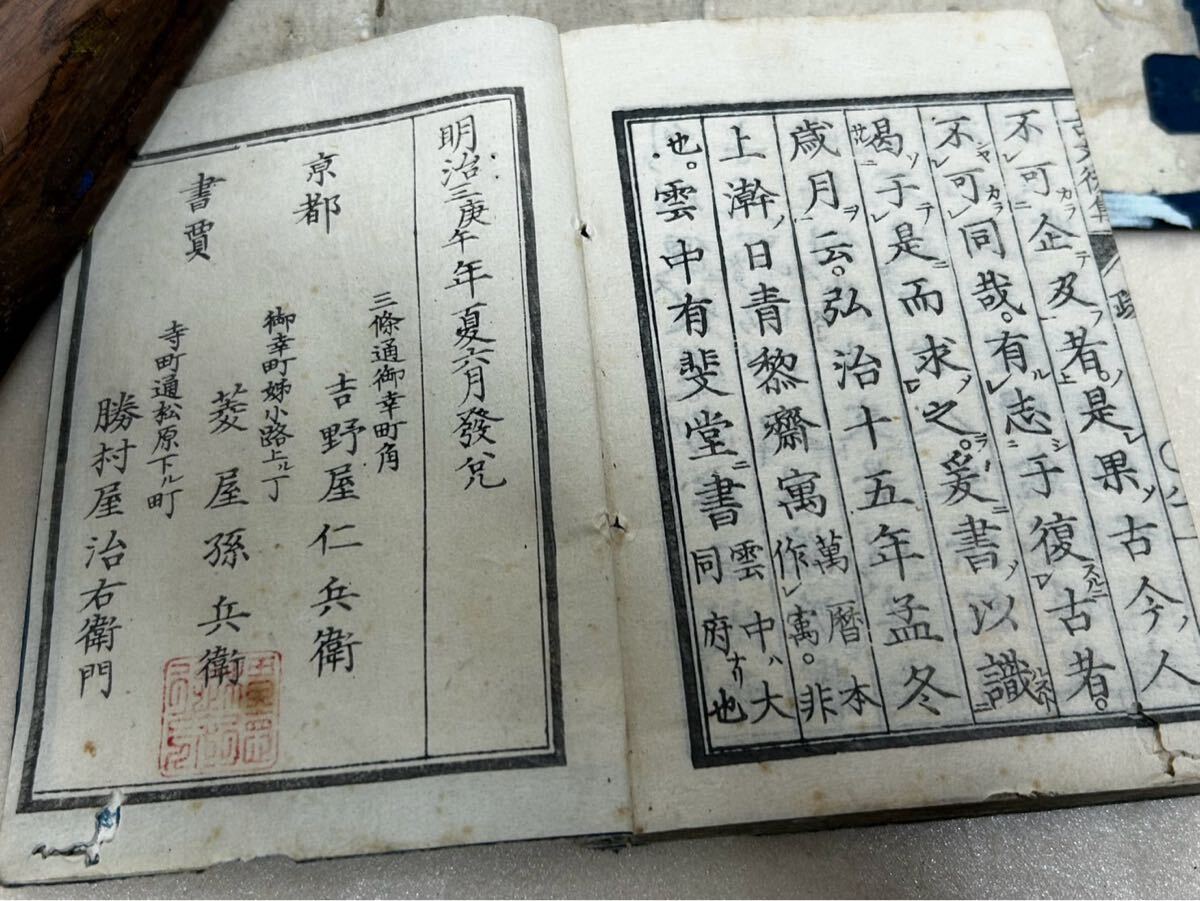 不可企及者是果古今人
不可同哉。有志于復古者。
曷于是而求之。爰書以識
歳月云。弘治十五年孟冬
上澣日青黎齋寓萬暦本作寓。非
也。雲中有斐堂書雲中ハ大同府ナリ也
明治三庚午年夏六月發兌
京都
書賈
三條通御幸町角
吉野屋仁兵衛
御幸町姊小路上ル丁
菱屋孫兵衛
寺町通松原下ル町
勝村屋治右衛門